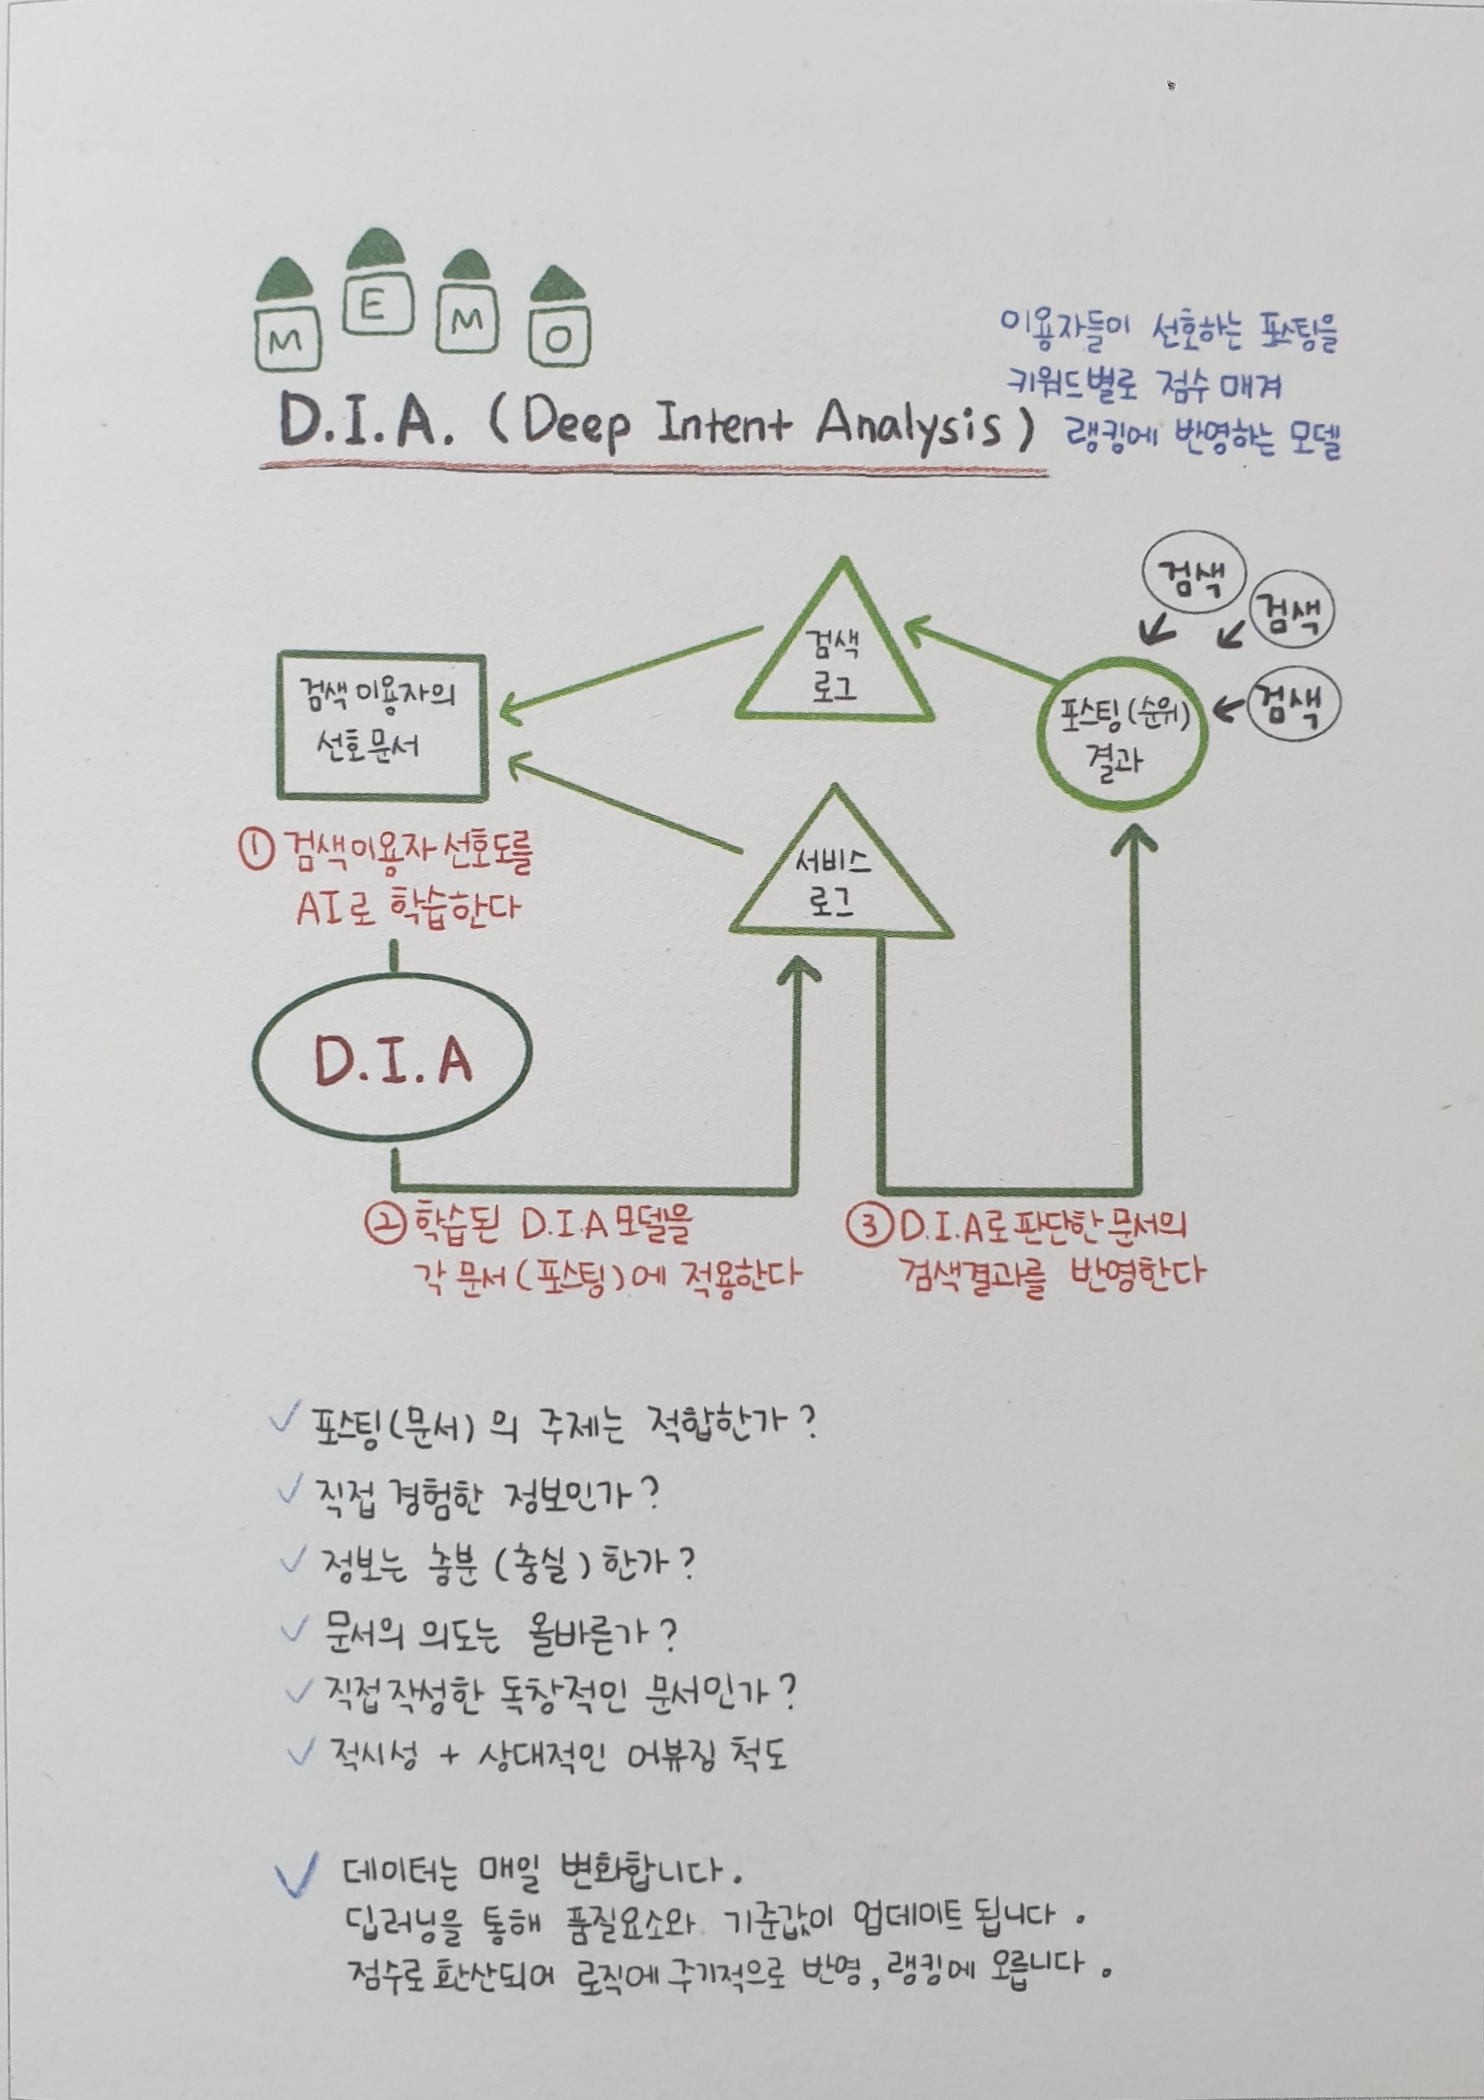 MEMO
D.I.A. (Deep Intent Analysis)
이용자들이 선호하는 포스팅을
키워드별로 점수 매겨
랭킹에 반영하는 모델
검색
검색
검색
포스팅(순위)
결과
검색
로그
검색 이용자의
선호문서
서비스
로그
① 검색이용자 선호도를
AI로 학습한다
D.I.A
② 학습된 D.I.A 모델을
각 문서(포스팅)에 적용한다
③ D.I.A로 판단한 문서의
검색결과를 반영한다
✓ 포스팅(문서)의 주제는 적합한가?
✓ 직접 경험한 정보인가?
✓ 정보는 충분(충실)한가?
✓ 문서의 의도는 올바른가?
✓ 직접작성한 독창적인 문서인가?
✓ 적시성 + 상대적인 어뷰징 척도
✓ 데이터는 매일 변화합니다.
딥러닝을 통해 품질요소와 기준값이 업데이트 됩니다.
점수로 환산되어 로직에 주기적으로 반영, 랭킹에 오릅니다.